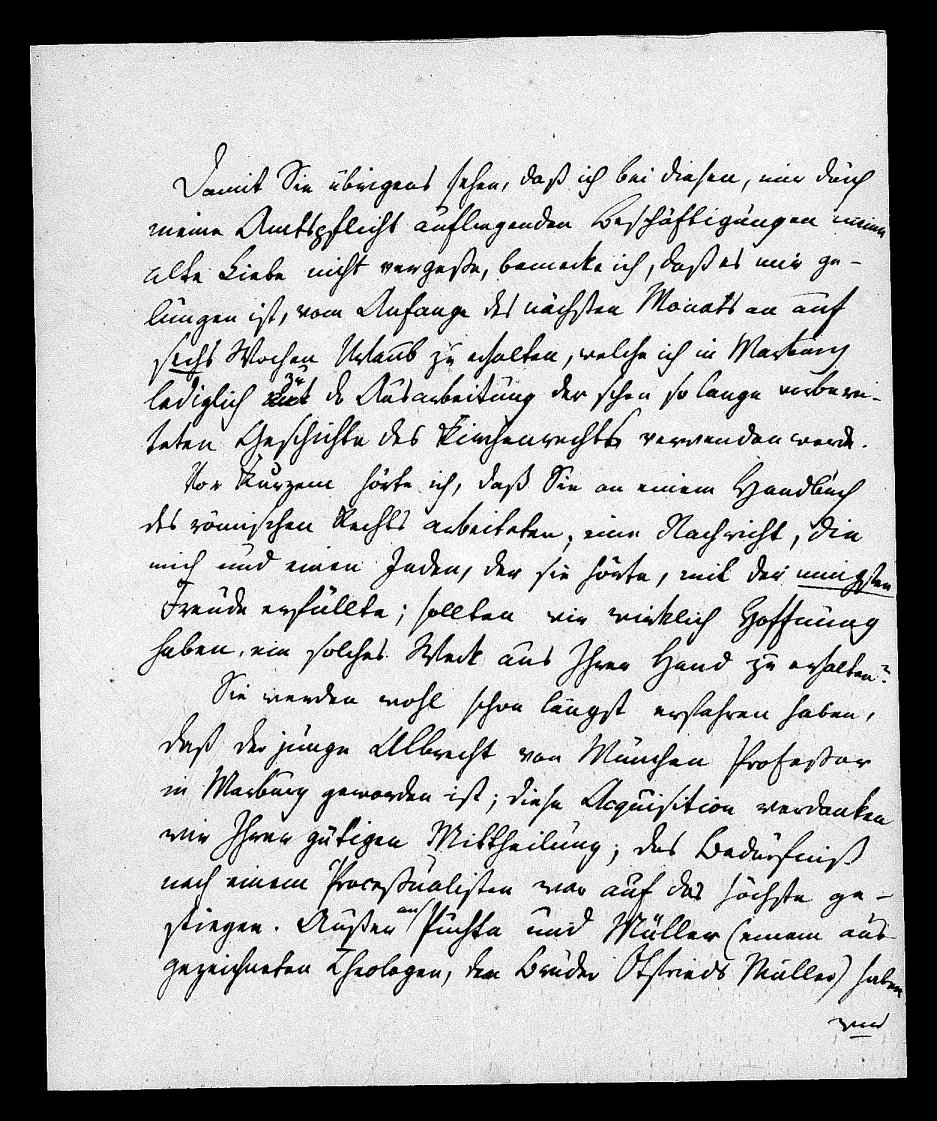 Damit Sie übrigens sehen, daß ich bei diesen, mir durch
meine Amtspflicht aufliegenden Beschäftigungen meine
alte Liebe nicht vergeße, bemerke ich, daß es mir ge-
lungen ist, vom Anfange des nächsten Monats an auf
sechs Wochen Urlaub zu erhalten, welche ich in Marburg
lediglich zu der Ausarbeitung der schon so lange vorberei-
teten Geschichte des Kirchenrechts verwenden werde.
Vor Kurzem hörte ich, daß Sie an einem Handbuch
des römischen Rechts arbeiteten, eine Nachricht, die
mich und einen Jeden, der sie hörte, mit der innigsten
Freude erfüllte; sollten wir wirklich Hoffnung
haben, ein solches Werk aus Ihrer Hand zu erhalten?
Sie werden wohl schon längst erfahren haben,
daß der junge Albrecht von München Professor
in Marburg geworden ist; diese Acquisition verdanken
wir Ihrer gütigen Mittheilung; das Bedürfniß
nach einem Processualisten war auf das höchste ge-
stiegen. Außer an Puchta und Müller (einem aus-
gezeichneten Theologen, dem Bruder Otfrieds Müller) haben
wir